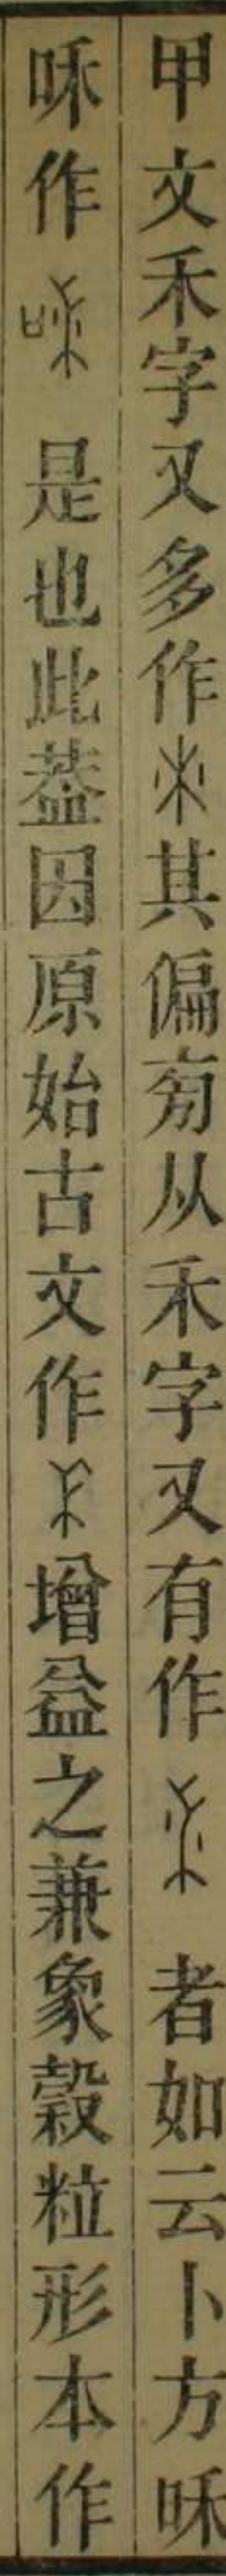 甲文禾字又多作其偏旁从禾字又有作者如云卜方咊
咊作是也此葢因原始古文作增益之兼象穀粒形本作